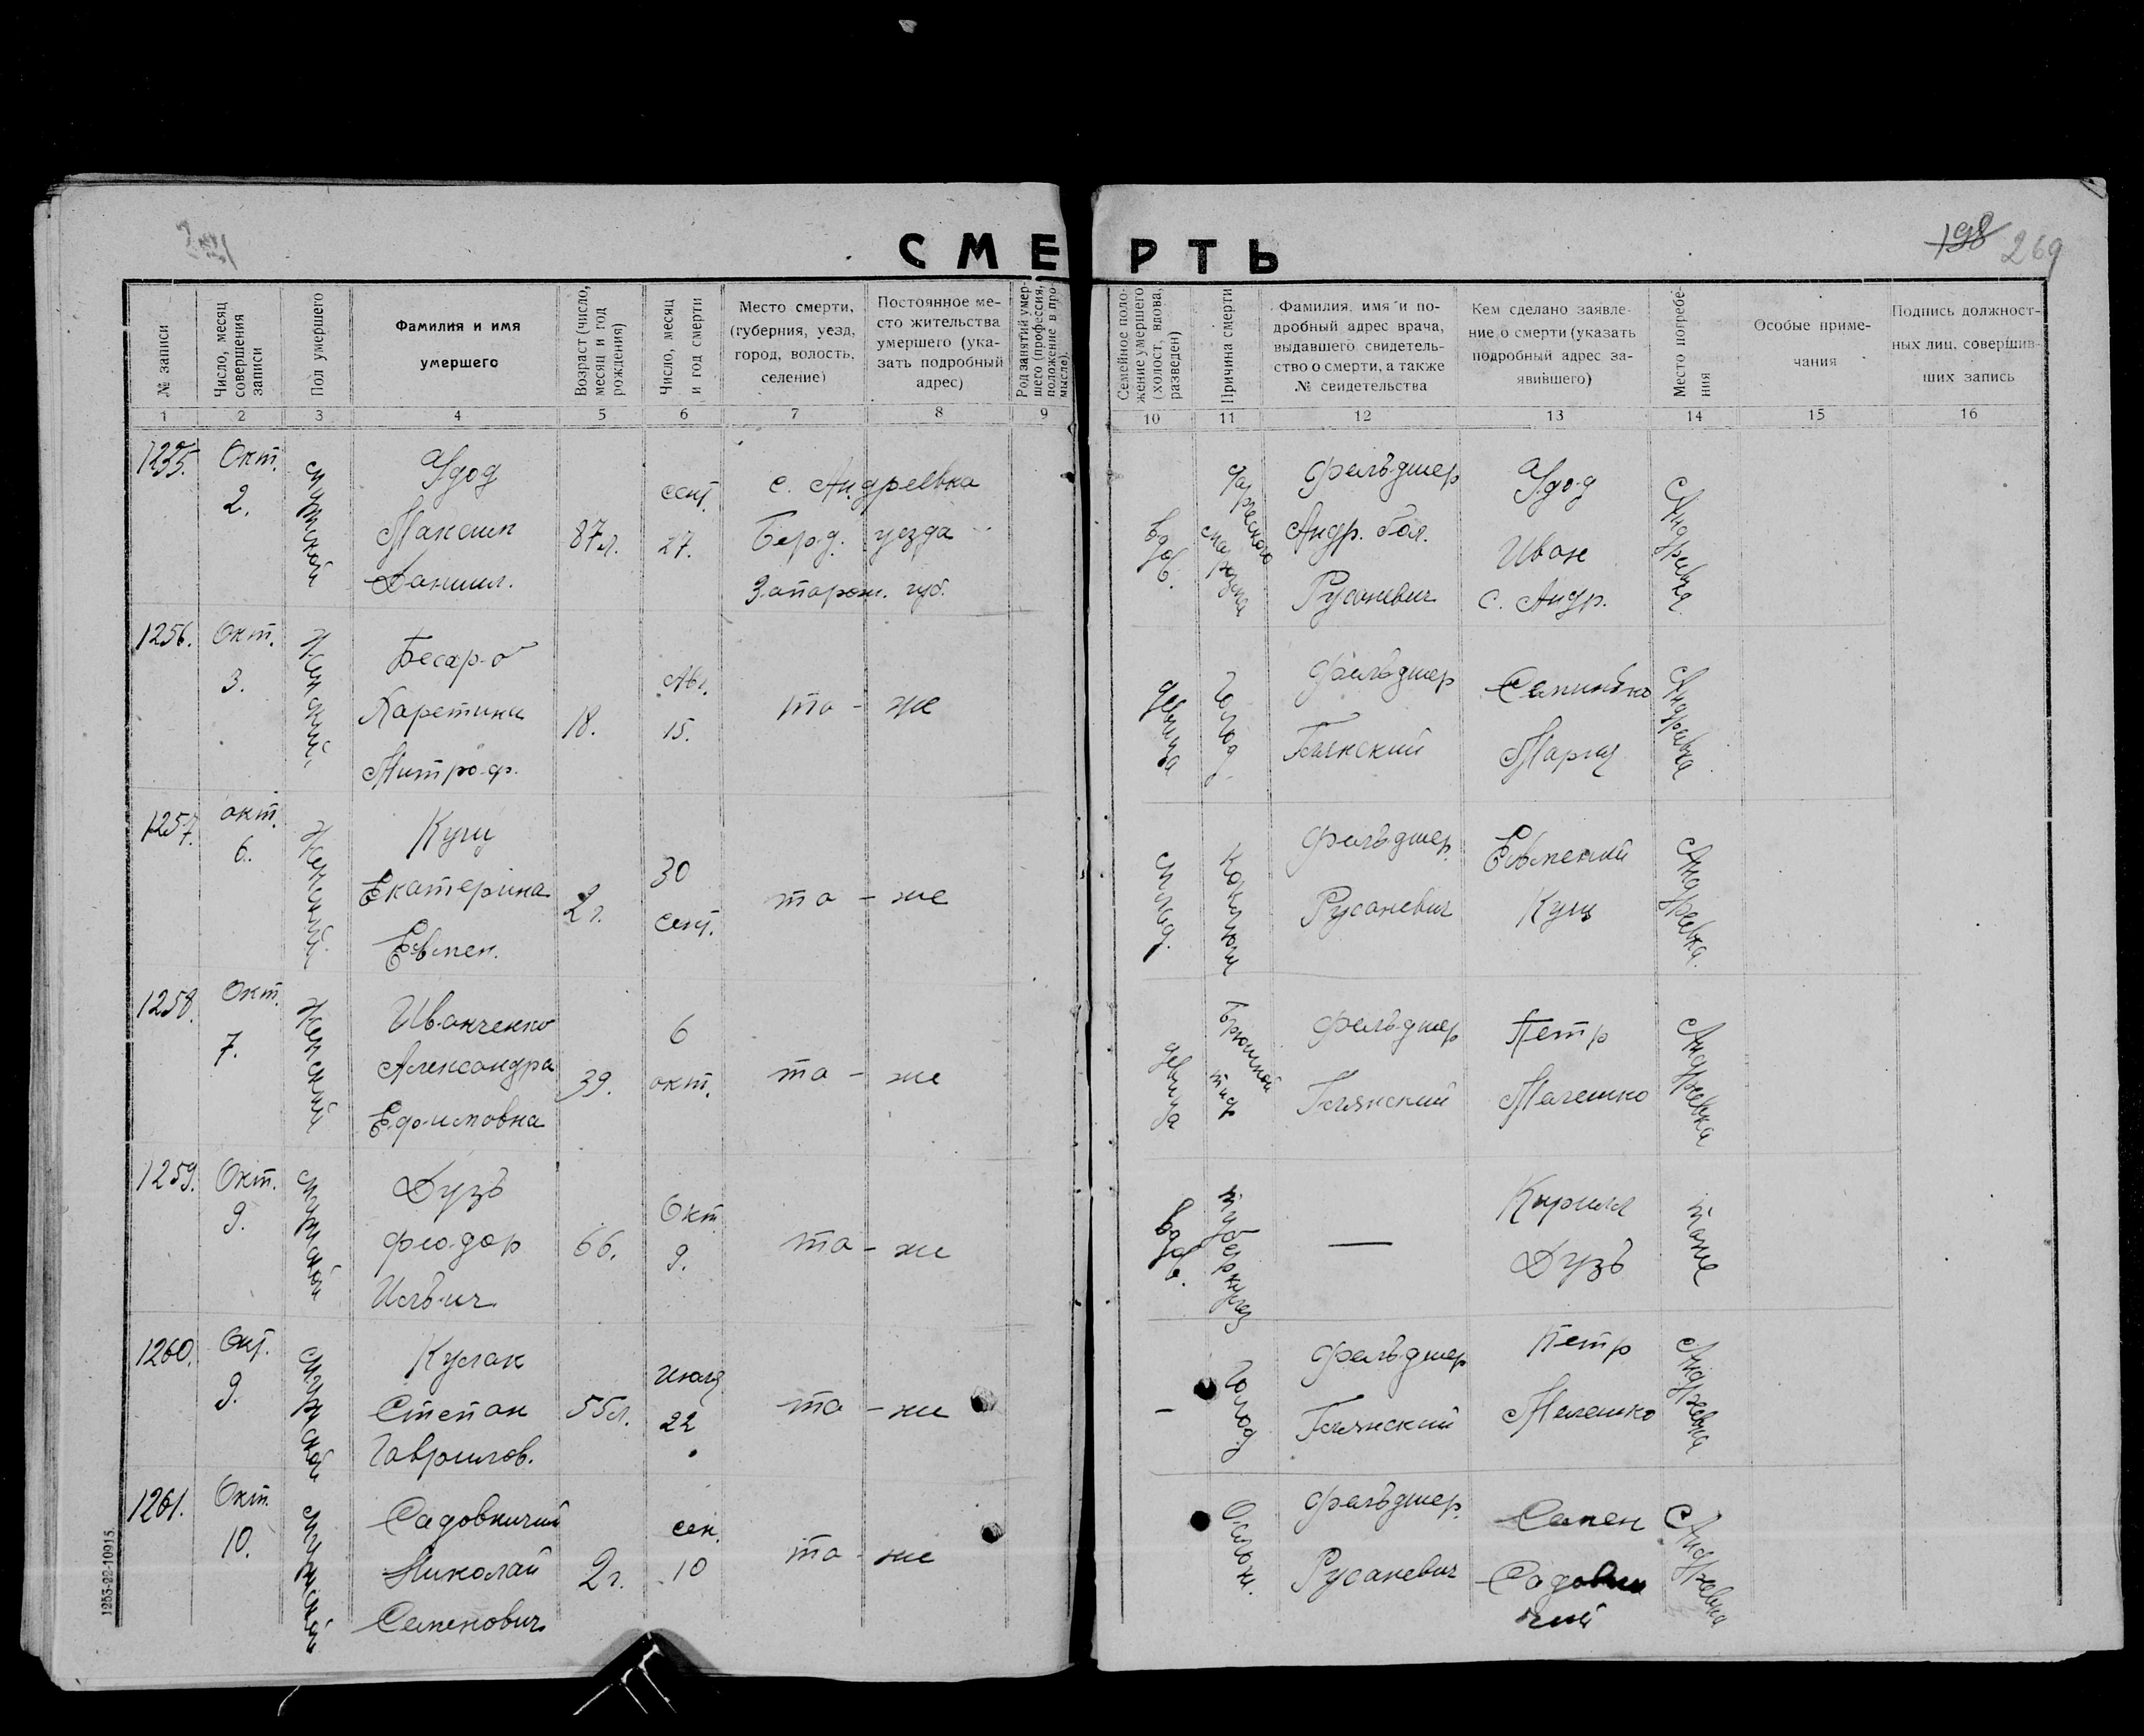 СМЕРТЬ
198 269
№ записи
Число, месяц совершения записи
Пол умершего
Фамилия и имя умершего
Возраст (число, месяц и год рождения)
Число, месяц и год смерти
Место смерти, (губерния, уезд, город, волость, селение)
Постоянное место жительства умершего (указать подробный адрес)
Род занятий умершего (профессия, положение в промысле).
Семейное положение умершего (холост, вдова, разведен)
Причина смерти
Фамилия, имя и подробный адрес врача, выдавшего свидетельство о смерти, а также № свидетельства
Кем сделано заявление о смерти (указать подробный адрес заявившего)
Место погребения
Особые примечания
Подпись должностных лиц, совершивших запись
1 2 3 4 5 6 7 8 9 10 11 12 13 14 15 16
1255. Окт. 2. мужской
Удод
Максим
Даниил.
87л. сент. 27.
с. Андреевка
Берд. уезда
Запорож. губ.
вдов.
старческого
Фельдшер
Андр. бол.
Русаневич
Удод
Иван
с. Андр.
Андреевка
1256. Окт. 3. Женский
Митроф.
18. Авг. 15. то - же
девица Голод.
Фельдшер
Мария
Андреевка
1257. окт. 6. Женский
Кущ
Екатерина
Евмен.
2 г. 30 сент. то - же
Фельдшер.
Русаневич
Евмений
Кущ
Андреевка.
1258. Окт. 7. Женский
Иванченко
Александра
Ефимовна
39. 6 окт. то - же
девица Брюшной тиф
Фельдшер
Петр
Мелешко
Андреевка
1259. Окт. 9. мужской
Дузь
Феодор
Ильич
66. Окт 9. то - же
вдов. туберкулез
—
Кирилл
Дузь
тоже
1260. Окт. 9. мужской
Кулак
Степан
Гаврилов.
55л. июля 22 то - же
– Голод
Фельдшер
Петр
Мелешко
Андреевка
1261. Окт. 10. мужской
Садовничий
Николай
Семенович
2 г. сен. 10 то - же
Фельдшер.
Русаневич
Семен
Садовничий
Андреевка
1253-22-10915.